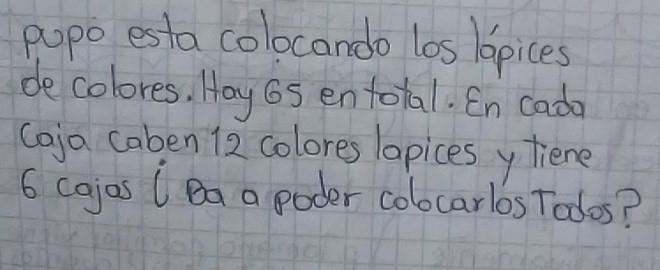 pupo esta colocando los lápices
de colores. Hay 65 en total. En cada
Caja caben 12 colores lapices y tiene
6 cajas ¿ Ba a poder colocarlos Todos?